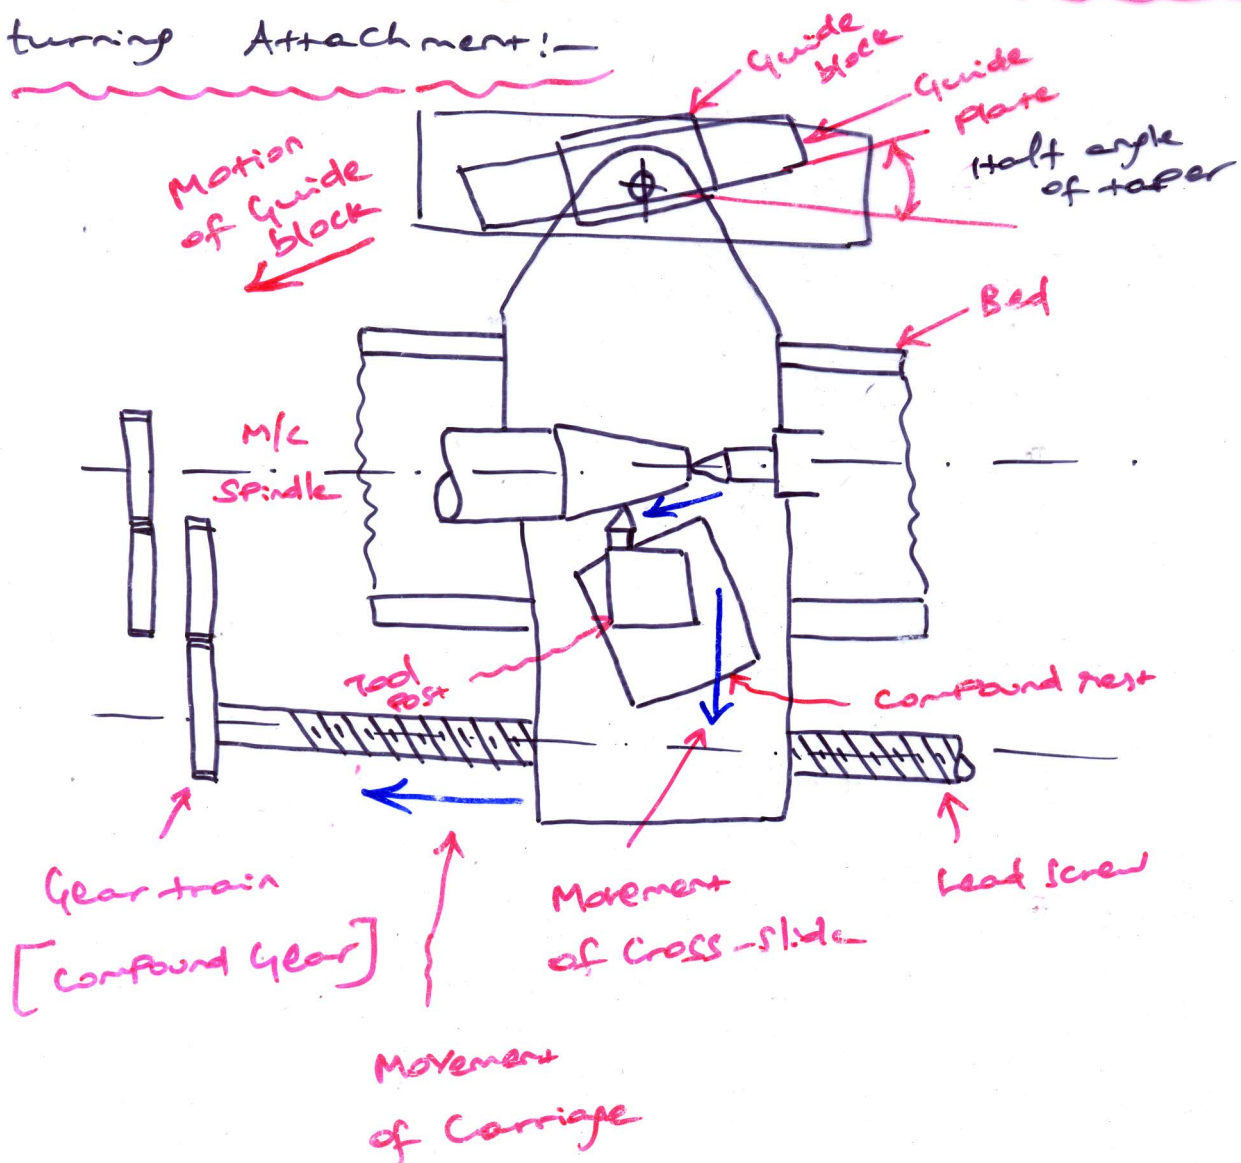 turning Attachment:-
Guide
block
Guide
Plate
Half angle
of taper
Motion
of Guide
block
Bed
M/C
Spindle
Tool
Post
Compound rest
Gear train
[Compound Gear]
Movement
of Cross-slide
Lead Screw
Movement
of Carriage